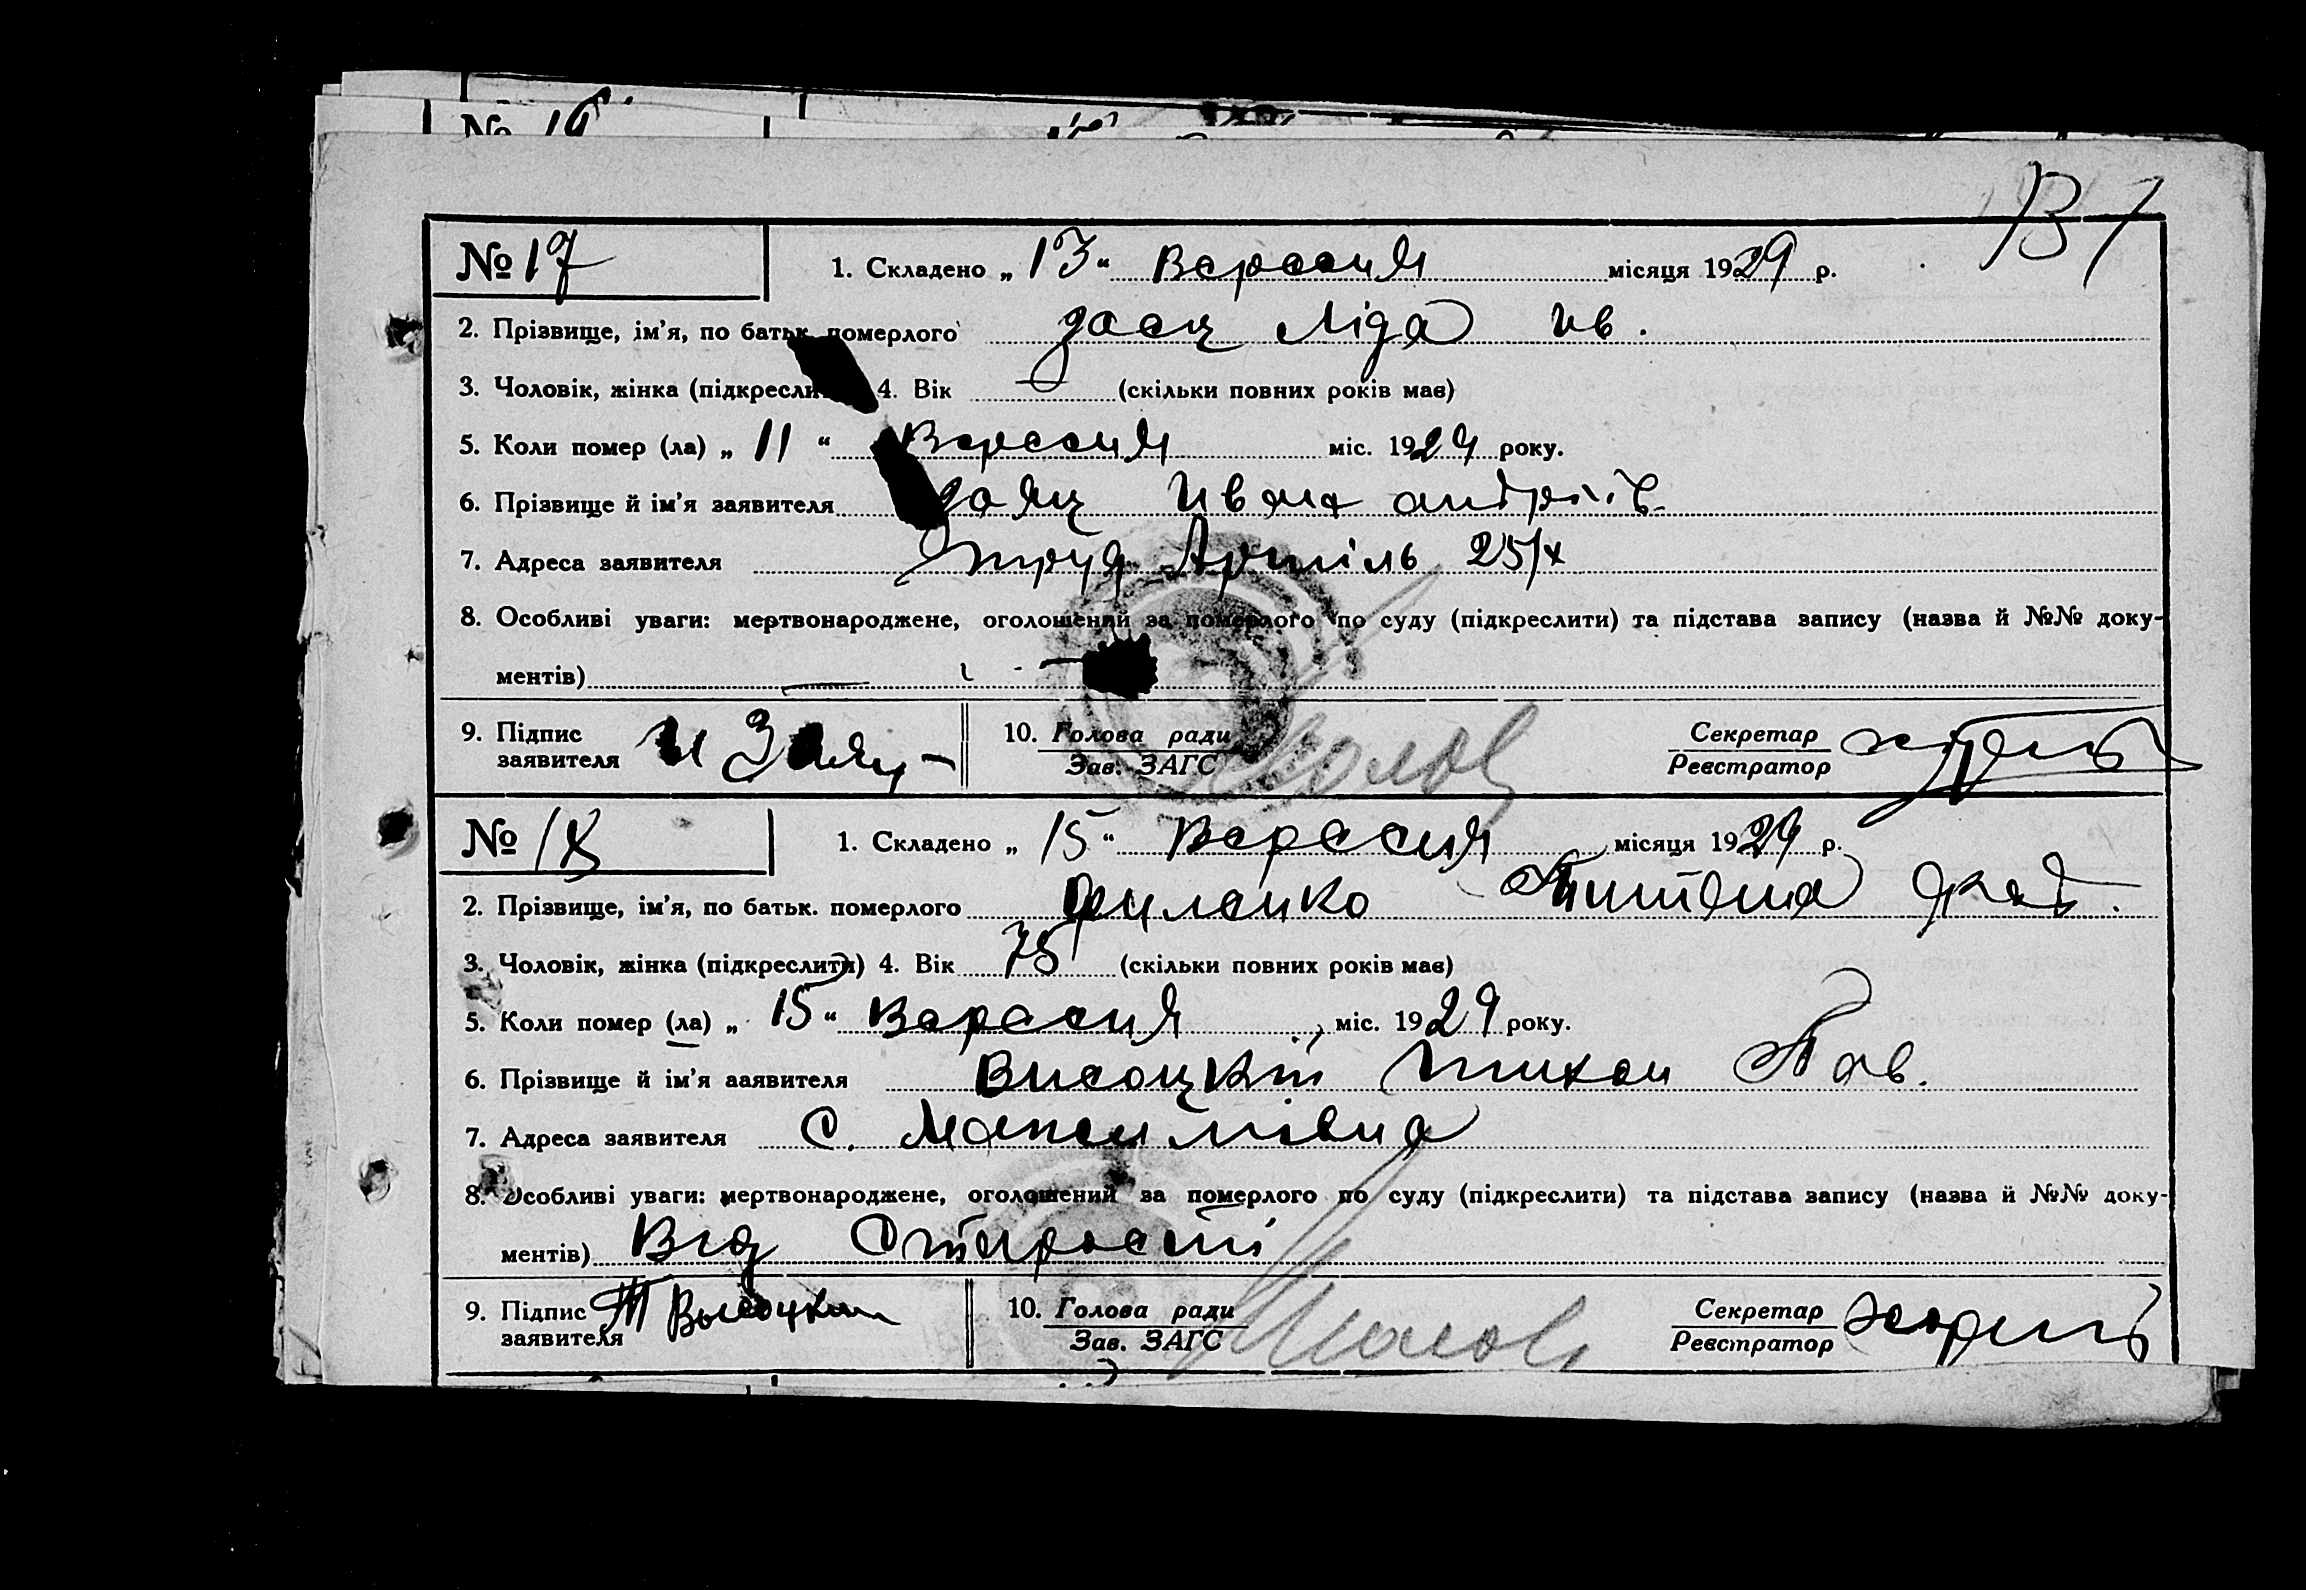 № 17
1. Складено „ 13 “ Вересня місяця 1929 р.
2. Прізвище, ім’я, по батьк. померлого Заєц Ліда Ив.
3. Чоловік, жінка (підкреслити) 4. Вік — (скільки повних років має)
5. Коли помер (ла) „ 11 “ Вересня міс. 1929 року.
6. Прізвище й ім’я заявителя Заяц Иван Андріїв.
7. Адреса заявителя Артіль 25/х
8. Особливі уваги: мертвонароджене, оголошений за померлого по суду (підкреслити) та підстава запису (назва й №№ доку-
ментів) —
9. Підпис
заявителя И Заяц
10. Голова ради
Зав. ЗАГС
Секретар
Реєстратор
№ 18
1. Складено „ 15 “ Вересня місяця 1929 р.
2. Прізвище, ім’я, по батьк. померлого
3. Чоловік, жінка (підкреслити) 4. Вік 75 (скільки повних років має)
5. Коли помер (ла) „ 15 “ Вересня міс. 1929 року.
6. Прізвище й ім’я заявителя Висоцкій Тихон Пав.
7. Адреса заявителя С. Максимівка
8. Особливі уваги: мертвонароджене, оголошений за померлого по суду (підкреслити) та підстава запису (назва й №№ доку-
ментів) Від Старости
9. Підпис
заявителя Т Высоцкий
10. Голова ради
Зав. ЗАГС
Секретар
Реєстратор